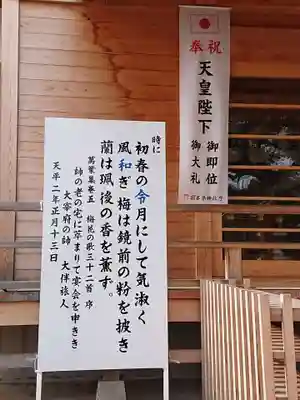 奉祝
天皇陛下
御即位
御大礼
時に
初春の令月にして気淑く
風和ぎ梅は鏡前の粉を披き
蘭は珮後の香を薫す。
萬葉集巻五 梅花の歌三十二首 序
帥の老の宅に萃まりて宴会を申きき
大宰府の帥 大伴旅人
天平二年正月十三日